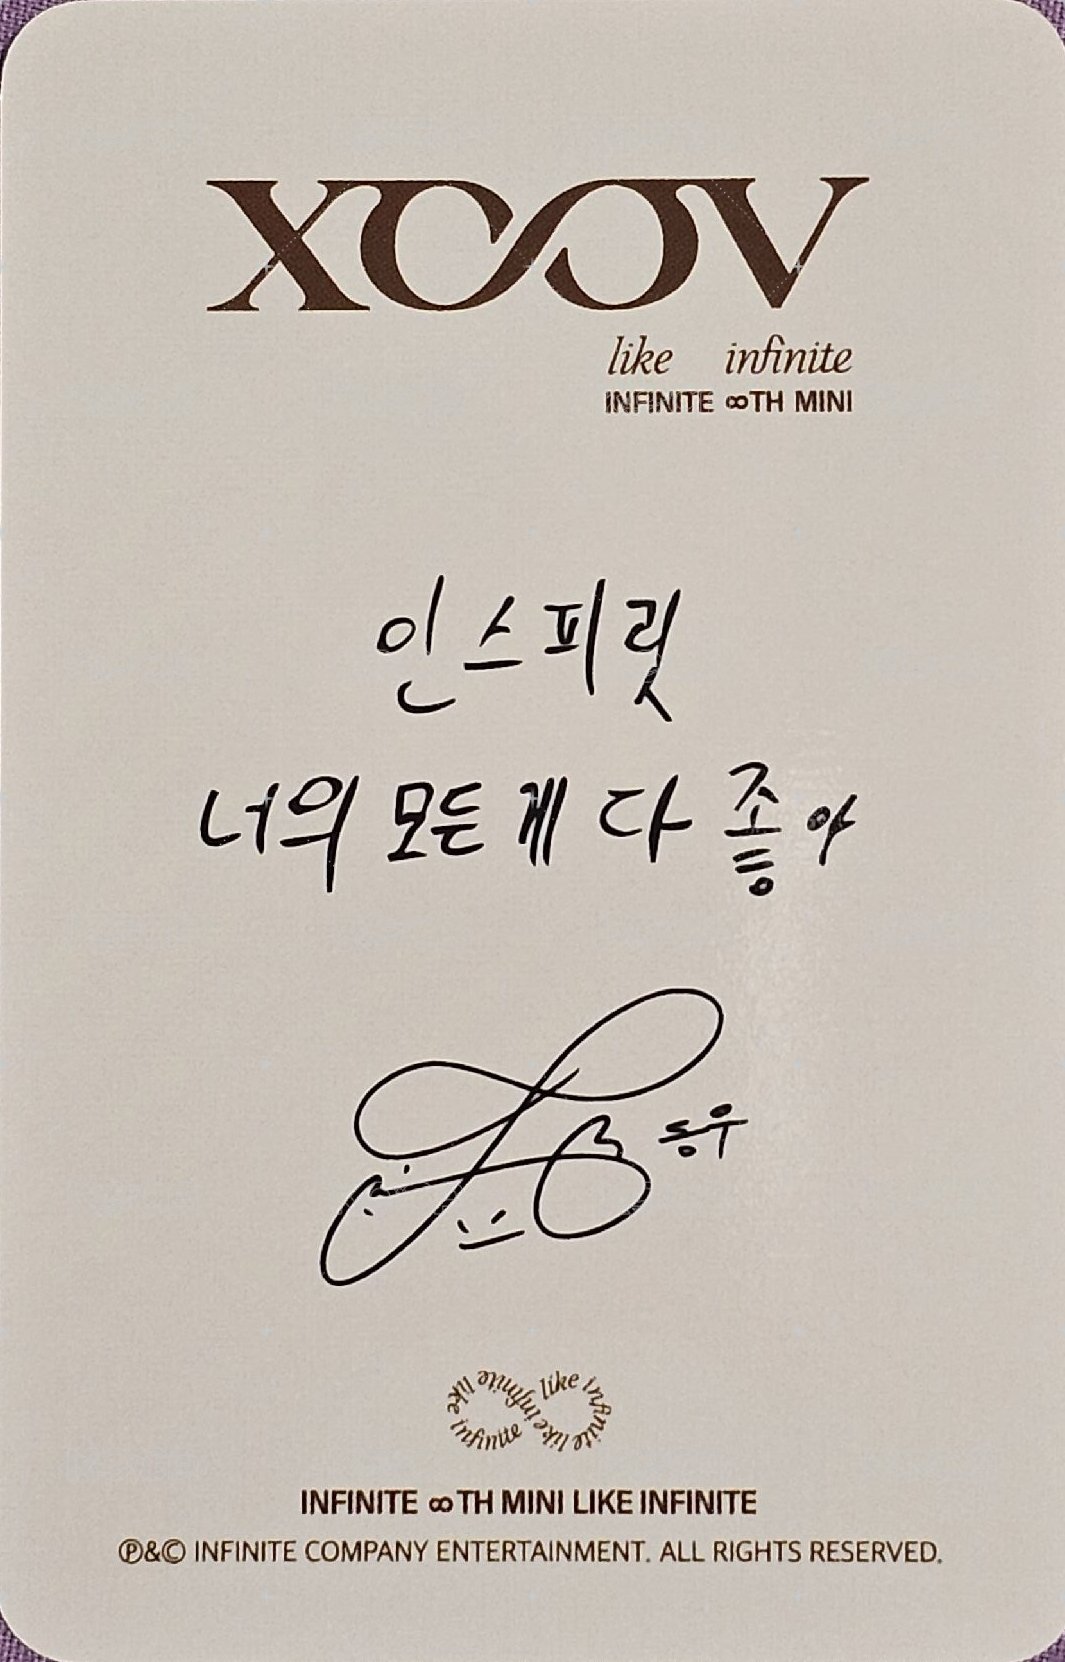 XOOV
like infinite
INFINITE ∞TH MINI
인스피릿
너의 모든게 다 좋아
동우
like infinite like infinite like infinite like infinite
INFINITE ∞TH MINI LIKE INFINITE
℗&© INFINITE COMPANY ENTERTAINMENT. ALL RIGHTS RESERVED.